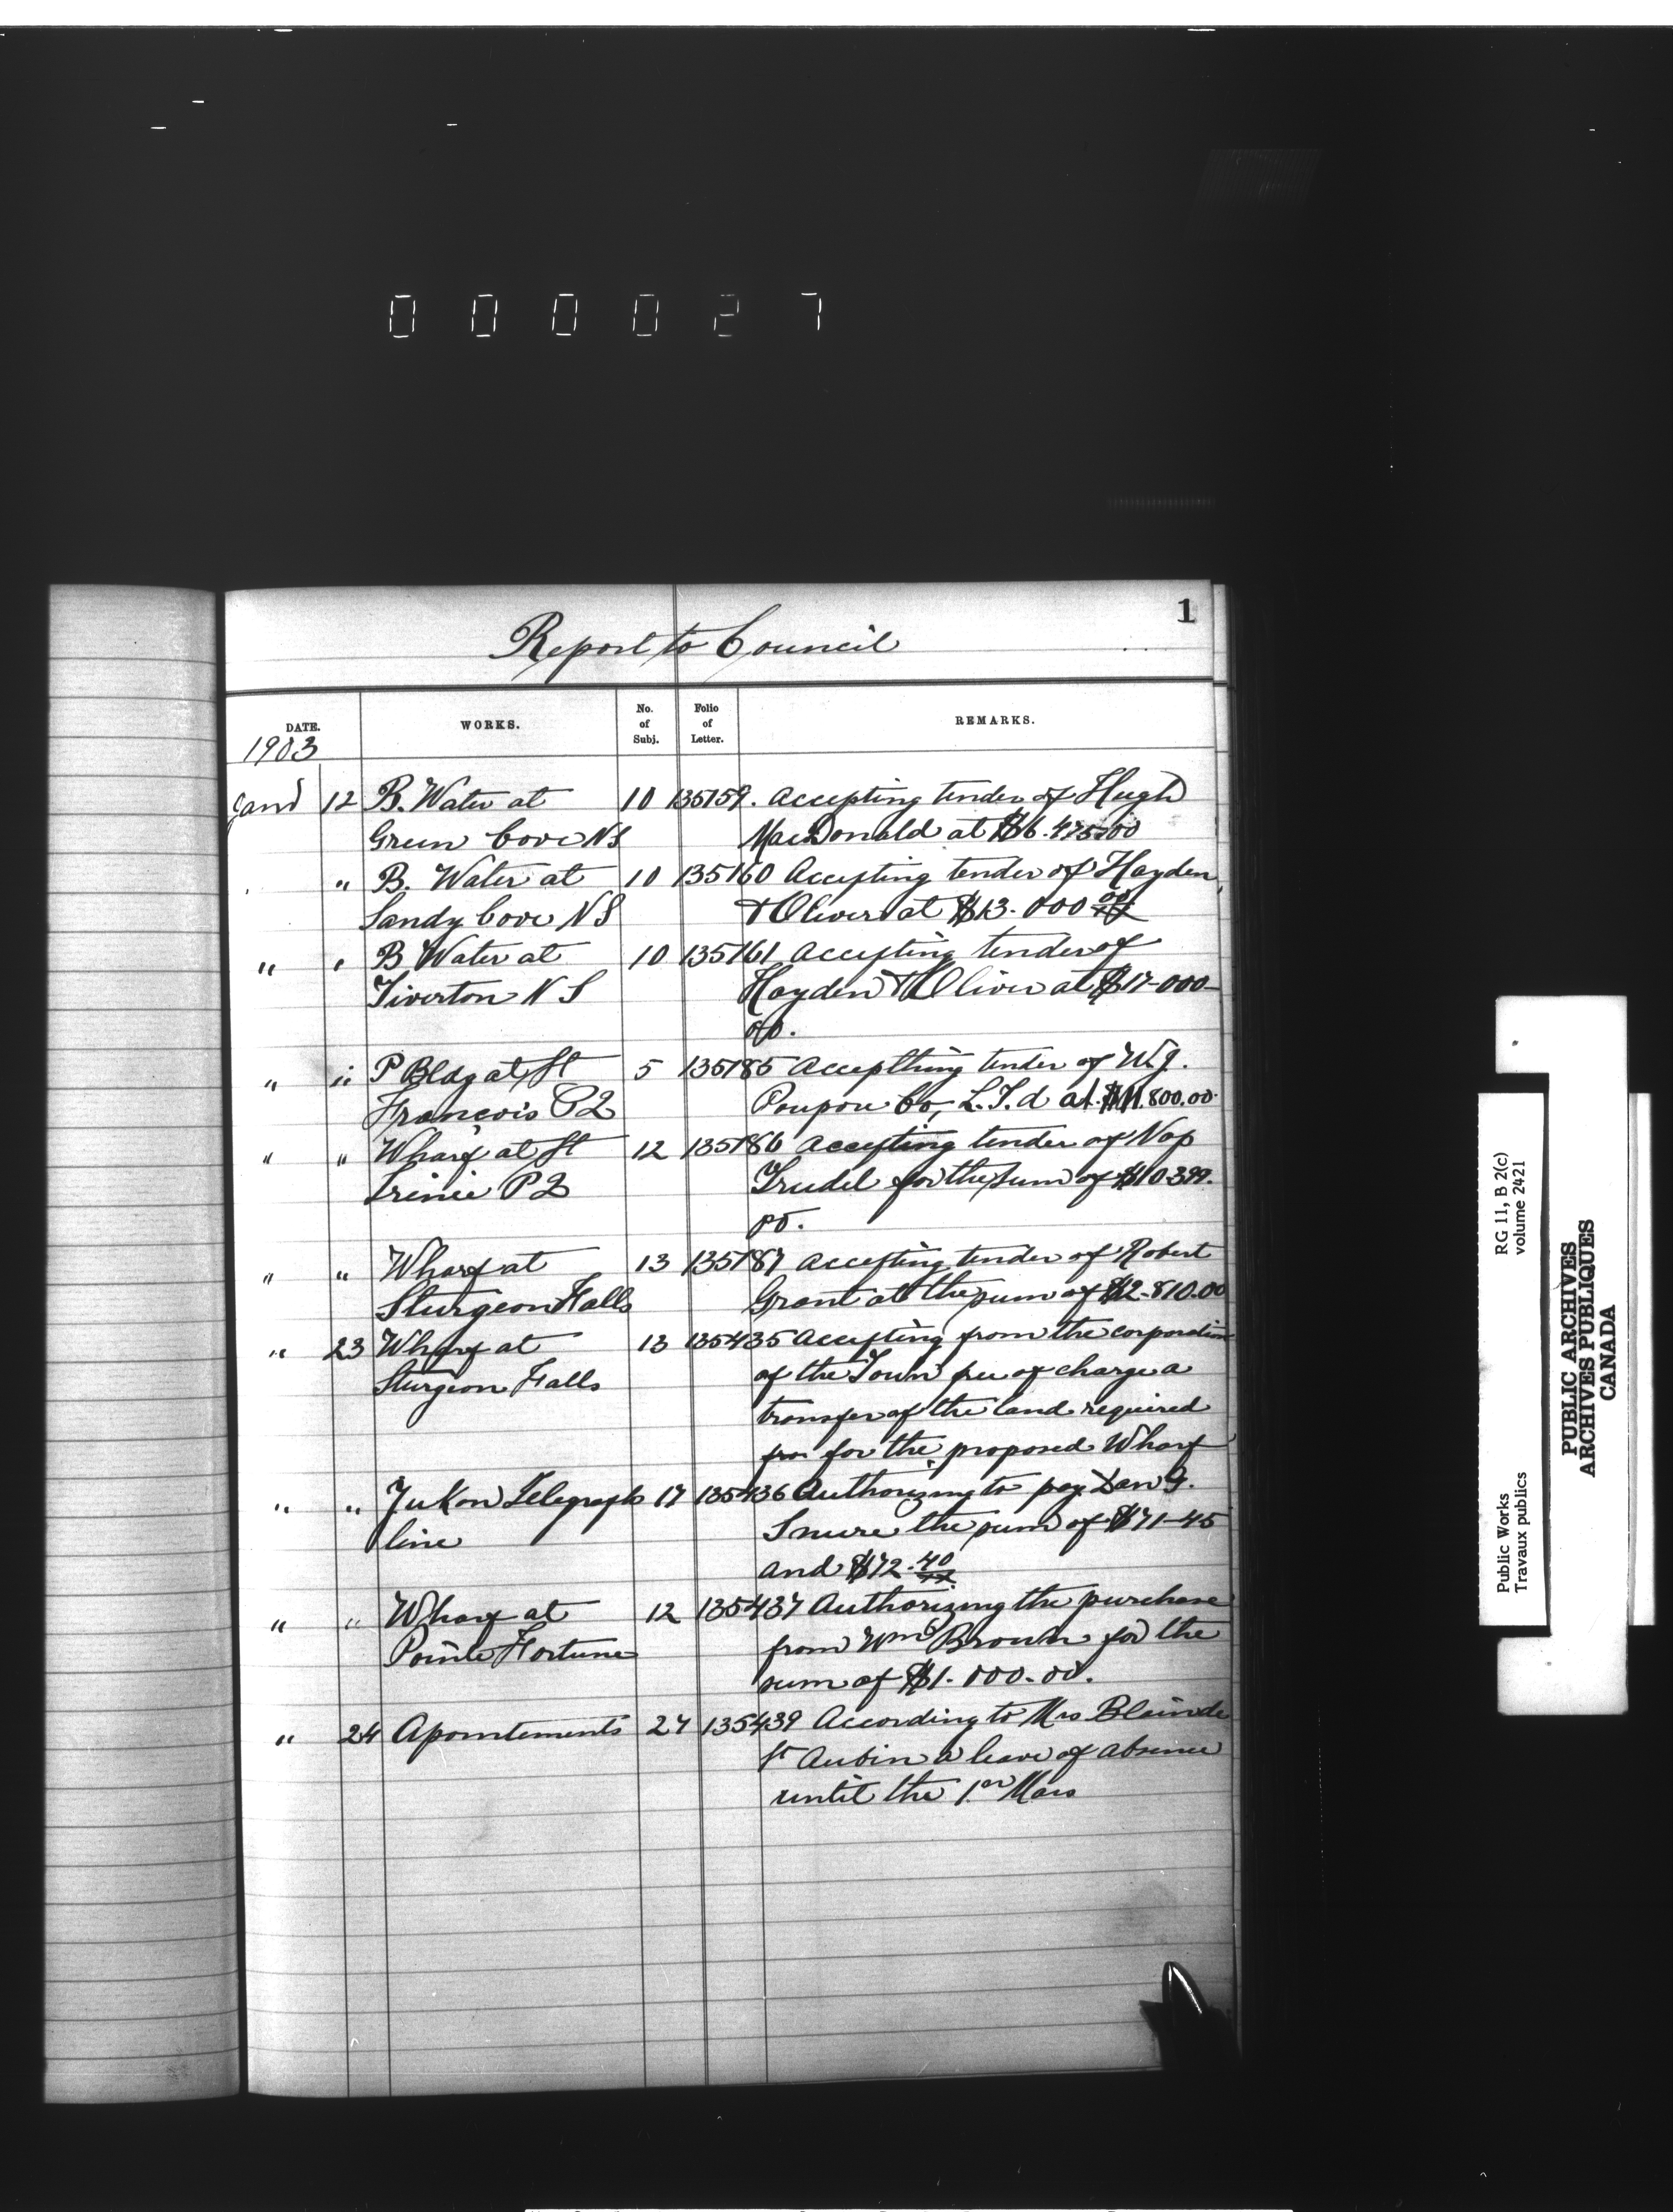 000027
1
Report to Council
DATE. WORKS. No. of Subj. Folio of Letter. REMARKS.
1903
Jany 12 B. Water at 10 135159. Accepting tender of Hugh
Green Cove NS MacDonald at $6.475.00
" B. Water at 10 135160 Accepting tender of Hayden
Sandy Cove NS & Oliver at $13.000 00
" " B Water at 10 135161 Accepting tender of
Tiverton N S Hayden & Oliver at $17-000-
00.
" " P Bldg at St 5 135185 Accepthing tender of W.J.
François P2 Poupou Co, L.T.d at $11.800.00
" " Wharf at St 12 135186 Accepting tender of Nap
Irenie P2 Trudel for the sum of $10399.
00.
" " Wharf at 13 135187 Accepting tender of Robert
Sturgeon Falls Grant at the sum of $2-810.00
" 23 Wharf at 13 135435 Accepting from the corporation
Sturgeon Falls of the Town free of charge a
transfer of the land required
for the proposed Wharf
" " Yukon Telegraph 17 135436 Authorizing to pay Dan G.
line Snure the sum of $71-45
and $72.40
" " Wharf at 12 135437 Authorizing the purchase
Pointe Fortune from Wm Brown for the
sum of $1.000.00.
" 24 Apointements 27 135439 According to Mrs Blain de
St Aubin a leave of absence
until the 1er Mars
Public Works RG 11, B 2(c)
Travaux publics volume 2421
PUBLIC ARCHIVES
ARCHIVES PUBLIQUES
CANADA